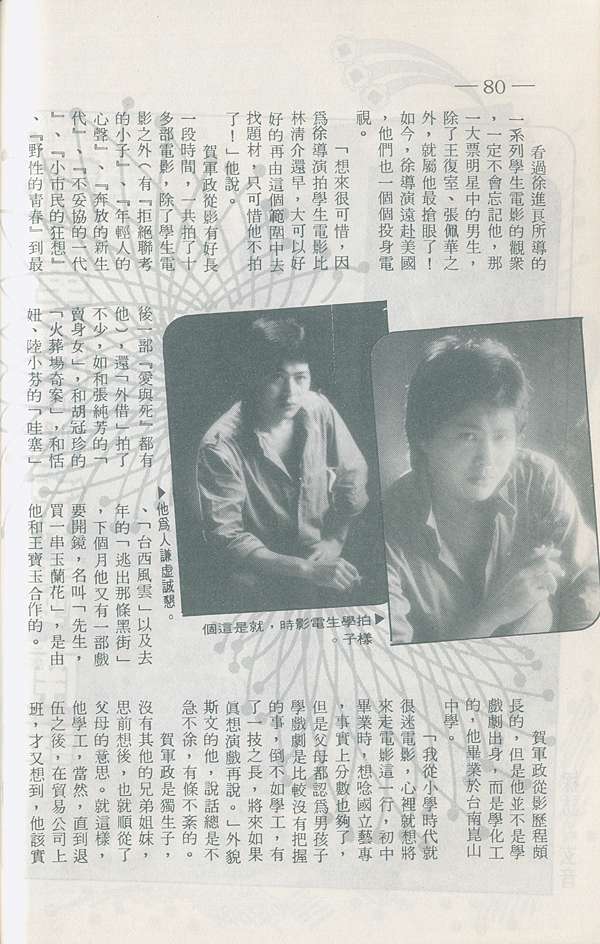 — 80 —
看過徐進良所導的
一系列學生電影的觀衆
，一定不會忘記他，那
一大票明星中的男生，
除了王復室、張佩華之
外，就屬他最搶眼了！
如今，徐導演遠赴美國
，他們也一個個投身電
視。
「想來很可惜，因
爲徐導演拍學生電影比
林清介還早，大可以好
好的再由這個範圍中去
找題材，只可惜他不拍
了！」他說。
賀軍政從影有好長
一段時間，一共拍了十
多部電影，除了學生電
影之外（有『拒絕聯考
的小子』、『年輕人的
心聲』、『奔放的新生
代』、『不妥協的一代
』、『小市民的狂想』
、『野性的青春』到最
後一部『愛與死』都有
他），還「外借」拍了
不少，如和張純芳的「
賣身女」，和胡冠珍的
「火葬場奇案」，和恬
妞、陸小芬的「哇塞」
、「台西風雲」以及去
年的「逃出那條黑街」
，下個月他又有一部戲
要開鏡，名叫「先生，
買一串玉蘭花」，是由
他和王寶玉合作的。
▶他爲人謙虛誠懇。
▶拍學生電影時，就是這個
樣子。
賀軍政從影歷程頗
長的，但是他並不是學
戲劇出身，而是學化工
的，他畢業於台南崑山
中學。
「我從小學時代就
很迷電影，心裡就想將
來走電影這一行，初中
畢業時，想唸國立藝專
，事實上分數也夠了，
但是父母都認爲男孩子
學戲劇是比較沒有把握
的事，倒不如學工，有
了一技之長，將來如果
眞想演戲再說。」外貌
斯文的他，說話總是不
急不徐，有條不紊的。
賀軍政是獨生子，
沒有其他的兄弟姐妹，
思前想後，也就順從了
父母的意思。就這樣，
他學工，當然，直到退
伍之後，在貿易公司上
班，才又想到，他該實